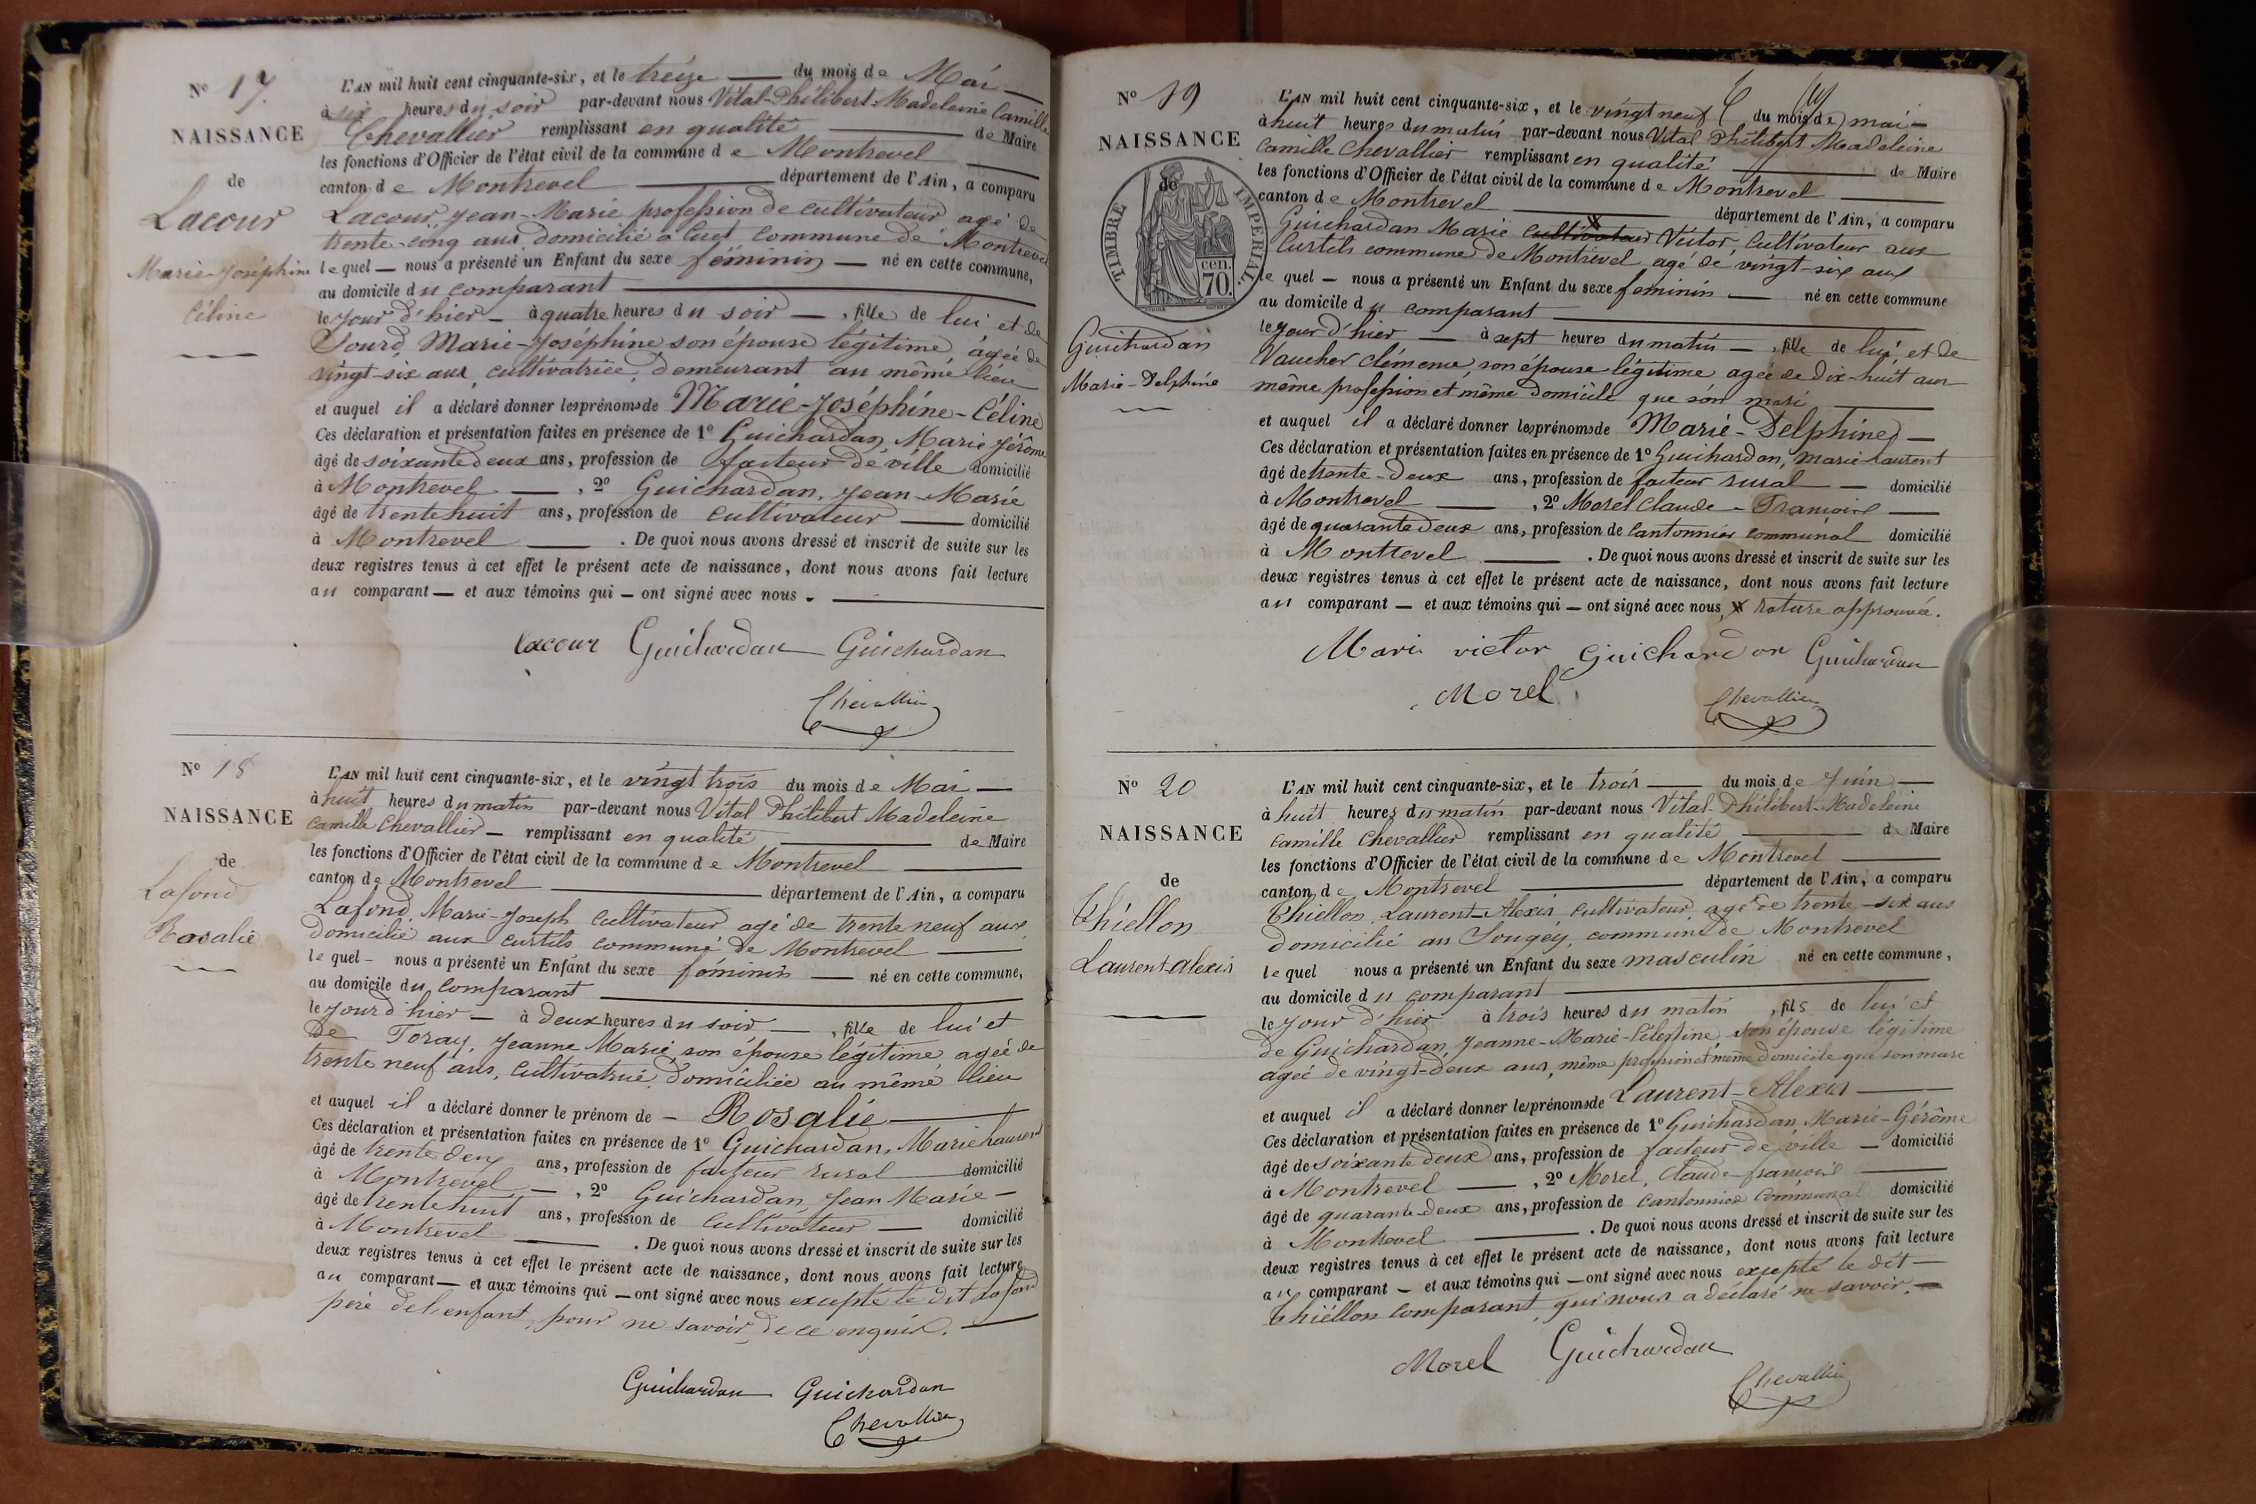 N° 17
NAISSANCE
de
Lacour
Marie-Joséphine
Céline
L'AN mil huit cent cinquante-six, et le treize du mois de Mai
à six heures du soir par-devant nous Vital-Philibert-Madeleine Camille
Chevallier remplissant en qualité de Maire
les fonctions d'Officier de l'état civil de la commune de Montrevel
canton de Montrevel département de l'Ain, a comparu
Lacour, Jean-Marie profession de cultivateur agé de
trente-cinq ans, domicilié à Cuet commune de Montrevel
lequel nous a présenté un Enfant du sexe féminin né en cette commune,
au domicile du comparant
le jour d'hier à quatre heures du soir, fille de lui et de
Sourd, Marie-Joséphine son épouse légitime, agée de
vingt-six ans, cultivatrice, demeurant au même lieu
et auquel il a déclaré donner les prénoms de Marie-Joséphine-Céline
Ces déclaration et présentation faites en présence de 1° Guichardan, Marie Jérôme
âgé de soixante deux ans, profession de facteur de ville domicilié
à Montrevel, 2° Guichardan, Jean-Marie
âgé de trente huit ans, profession de cultivateur domicilié
à Montrevel. De quoi nous avons dressé et inscrit de suite sur les
deux registres tenus à cet effet le présent acte de naissance, dont nous avons fait lecture
au comparant et aux témoins qui ont signé avec nous.
Lacour Guichardan Guichardan
Chevallier
N° 18
NAISSANCE
de
Lafond
Rosalie
L'AN mil huit cent cinquante-six, et le vingt trois du mois de Mai
à huit heures du matin par-devant nous Vital Philibert Madeleine
Camille Chevallier remplissant en qualité de Maire
les fonctions d'Officier de l'état civil de la commune de Montrevel
canton de Montrevel département de l'Ain, a comparu
Lafond, Marie-Joseph cultivateur agé de trente neuf ans
domicilié aux curtils commune de Montrevel
lequel nous a présenté un Enfant du sexe féminin né en cette commune,
au domicile du comparant
le jour d'hier à deux heures du soir, fille de lui et
de Foray, Jeanne Marie son épouse légitime, agée de
trente neuf ans, cultivatrice, domiciliée au même lieu
et auquel il a déclaré donner le prénom de Rosalie
Ces déclaration et présentation faites en présence de 1° Guichardan, Marie Laurent
âgé de trente deux ans, profession de facteur rural domicilié
à Montrevel, 2° Guichardan, Jean Marie
âgé de trente huit ans, profession de cultivateur domicilié
à Montrevel. De quoi nous avons dressé et inscrit de suite sur les
deux registres tenus à cet effet le présent acte de naissance, dont nous avons fait lecture
au comparant et aux témoins qui ont signé avec nous excepté le dit Lafond
père de l'enfant, pour ne savoir, de ce enquis.
Guichardan Guichardan
Chevallier
N° 19
NAISSANCE
de
TIMBRE IMPERIAL
70 cen.
Guichardan
Marie-Delphine
L'AN mil huit cent cinquante-six, et le vingt neuf du mois de mai
à huit heures du matin par-devant nous Vital Philibert Madeleine
Camille Chevallier remplissant en qualité de Maire
les fonctions d'Officier de l'état civil de la commune de Montrevel
canton de Montrevel département de l'Ain, a comparu
Guichardan Marie cultivateur Victor, Cultivateur aux
Curtils commune de Montrevel agé de vingt-six ans
lequel nous a présenté un Enfant du sexe feminin né en cette commune
au domicile du comparant
le jour d'hier à sept heures du matin, fille de lui et de
Vaucher clémence, son épouse légitime agée de dix-huit ans
même profession et même domicile que son mari
et auquel il a déclaré donner les prénoms de Marie-Delphine
Ces déclaration et présentation faites en présence de 1° Guichardan, Marie Laurent
âgé de trente-deux ans, profession de facteur rural domicilié
à Montrevel, 2° Morel Claude-François
âgé de quarante deux ans, profession de cantonnier communal domicilié
à Montrevel. De quoi nous avons dressé et inscrit de suite sur les
deux registres tenus à cet effet le présent acte de naissance, dont nous avons fait lecture
au comparant et aux témoins qui ont signé avec nous, x rature approuvée.
Marie victor Guichardon Guichardan
Morel
Chevallier
N° 20
NAISSANCE
de
Thiellon
Laurent alexis
L'AN mil huit cent cinquante-six, et le trois du mois de Juin
à huit heures du matin par-devant nous Vital-Philibert-Madeleine
Camille Chevallier remplissant en qualité de Maire
les fonctions d'Officier de l'état civil de la commune de Montrevel
canton de Montrevel département de l'Ain, a comparu
Thiellon, Laurent-Alexis, cultivateur, agé de trente-six ans
domicilié au Sougey, commune de Montrevel
lequel nous a présenté un Enfant du sexe masculin né en cette commune,
au domicile du comparant
le jour d'hier à trois heures du matin, fils de lui et
de Guichardan, Jeanne-Marie-Célestine, son épouse légitime
agée de vingt-deux ans, même profession et même domicile que son mari
et auquel il a déclaré donner les prénoms de Laurent-Alexis
Ces déclaration et présentation faites en présence de 1° Guichardan Marie-Gérôme
âgé de soixante deux ans, profession de facteur de ville domicilié
à Montrevel, 2° Morel, Claude-françois
âgé de quarante-deux ans, profession de cantonnier communal domicilié
à Montrevel. De quoi nous avons dressé et inscrit de suite sur les
deux registres tenus à cet effet le présent acte de naissance, dont nous avons fait lecture
au comparant et aux témoins qui ont signé avec nous excepté le dit
Thiéllon comparant, qui nous a déclaré ne savoir.
Morel Guichardan
Chevallier